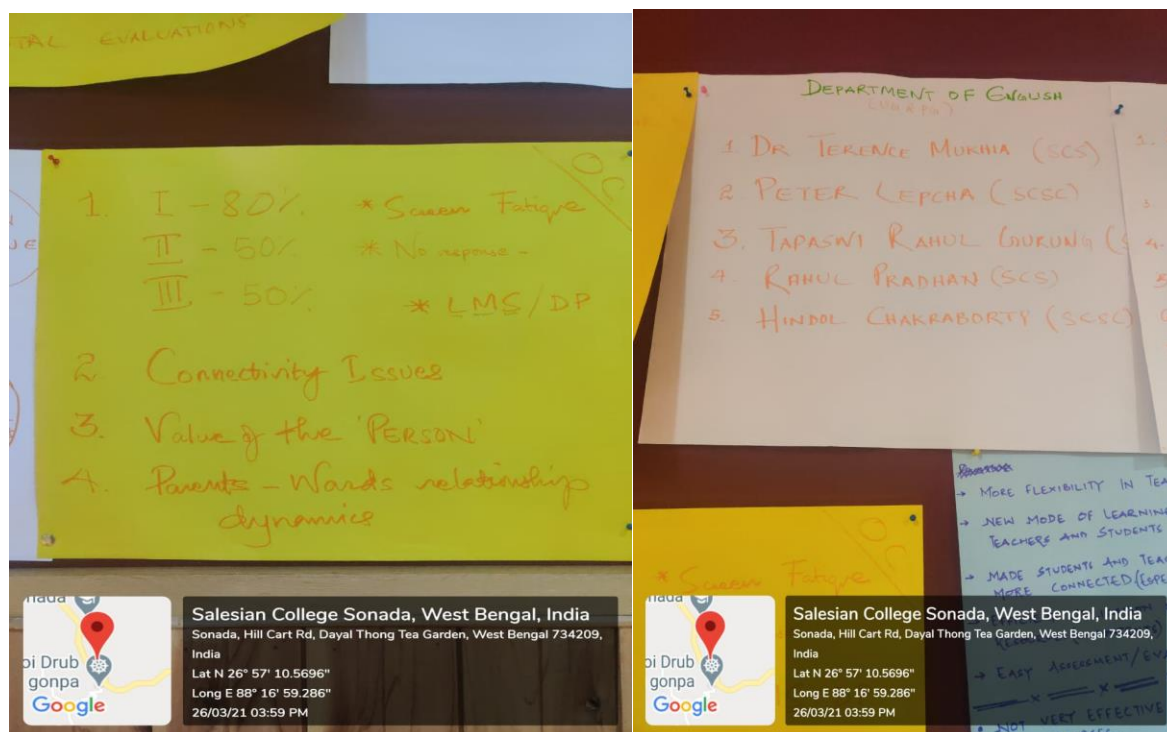 TAL EVALUATIONS
OC
1. I - 80% * Screen Fatigue
II - 50% * No response -
III - 50% * LMS/DP
2 Connectivity Issues
3. Value of the 'PERSON'
4. Parents - Wards relationship
dynamics
Google
Salesian College Sonada, West Bengal, India
Sonada, Hill Cart Rd, Dayal Thong Tea Garden, West Bengal 734209,
India
Lat N 26° 57' 10.5696"
Long E 88° 16' 59.286"
26/03/21 03:59 PM
DEPARTMENT OF ENGLISH
1. DR TERENCE MUKHIA (SCS)
2 PETER LEPCHA (SCSC)
3. TAPASWI RAHUL GURUNG (S
4. RAHUL PRADHAN (SCS)
5. HINDOL CHAKRABORTY (SCSC)
OC
* Screen Fatigue
→ MORE FLEXIBILITY IN TEA
→ NEW MODE OF LEARNING
TEACHERS AND STUDENTS
→ MADE STUDENTS AND TEA
MORE CONNECTED (ESPE
→ EASY ASSESSMENT/EVA
• NOT VERY EFFECTIVE
Google
Salesian College Sonada, West Bengal, India
Sonada, Hill Cart Rd, Dayal Thong Tea Garden, West Bengal 734209,
India
Lat N 26° 57' 10.5696"
Long E 88° 16' 59.286"
26/03/21 03:59 PM